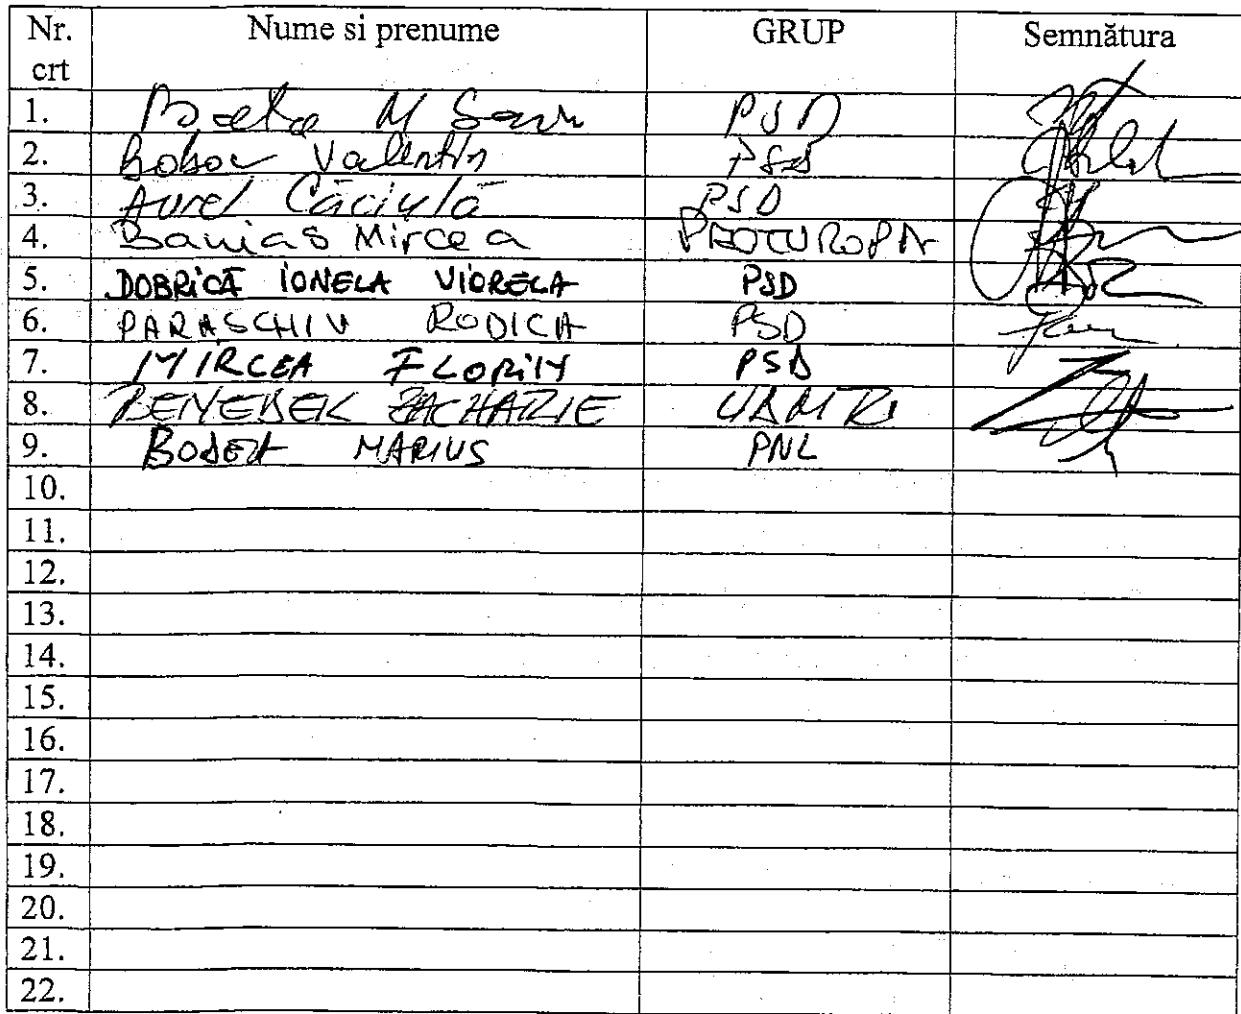 Nr. crt Nume si prenume GRUP Semnătura
1. M PSD
2. Boboc Valentin PSD
3. Aurel Căciulă PSD
4. Banias Mircea
5. DOBRICĂ IONELA VIORELA PSD
6. PARASCHIV RODICA PSD
7. MIRCEA FLORIN PSD
8. BENEDEK ZACHARIE UDMR
9. BODEA MARIUS PNL
10.
11.
12.
13.
14.
15.
16.
17.
18.
19.
20.
21.
22.